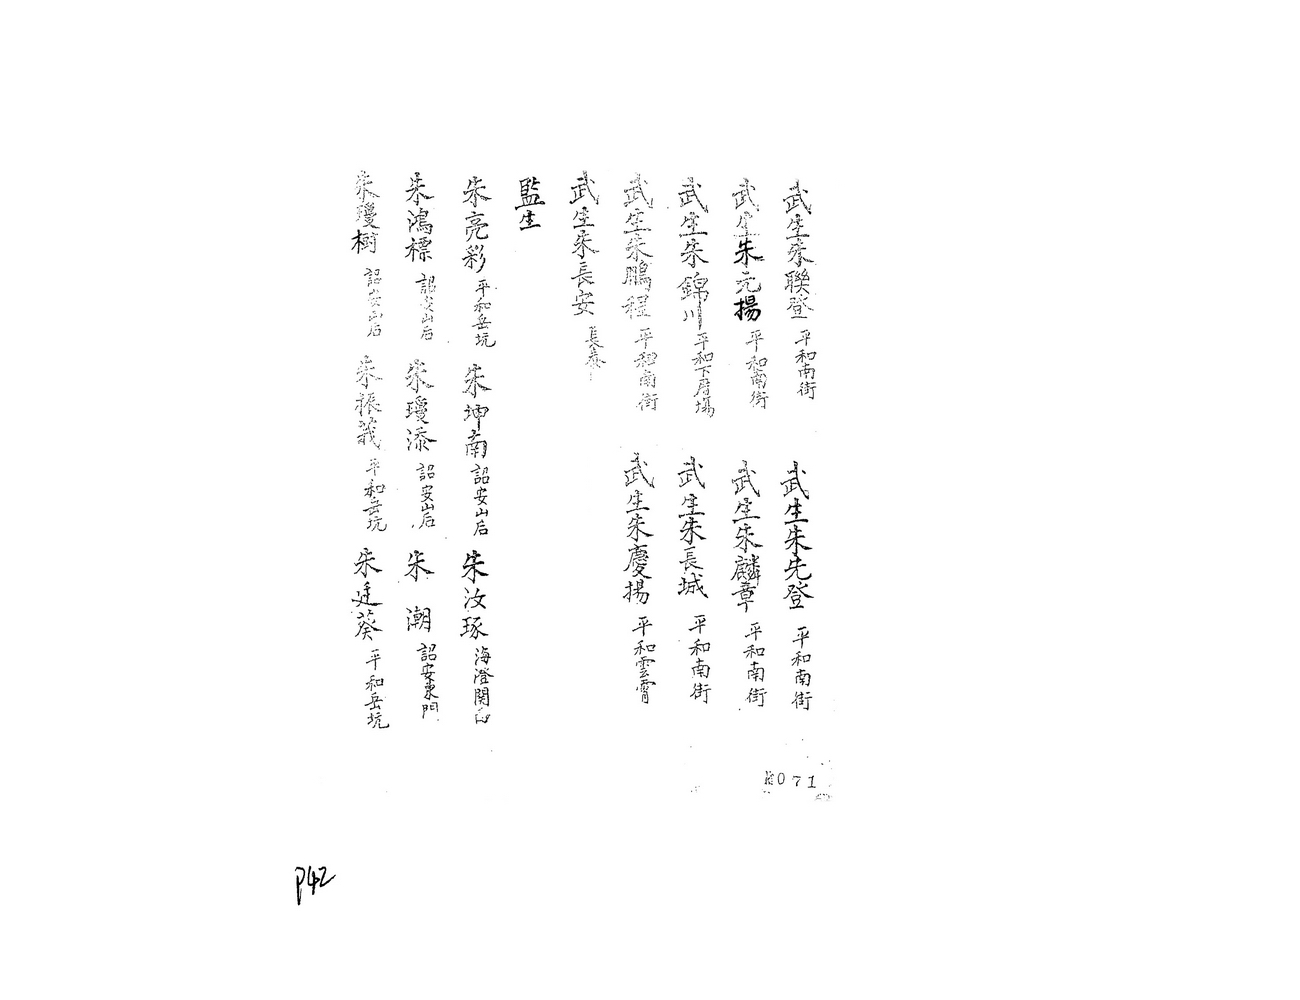 武生朱聯登 平和南街 武生朱先登 平和南街
武生朱元揚 平和南街 武生朱麟章 平和南街
武生朱錦川 平和下唇場 武生朱長城 平和南街
武生朱鵬程 平和南街 武生朱慶揚 平和雲霄
武生朱長安 長泰
監生
朱亮彩 平和岳坑 朱坤南 詔安山后 朱汝琢 海澄開
朱鴻標 詔安山后 朱瓊添 詔安山后 朱潮 詔安東門
朱瓊樹 詔安山后 朱振義 平和岳坑 朱廷葵 平和岳坑
071
P42